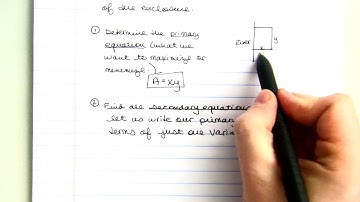 of the enclosure.
① Determine the primary
equation (what we
want to maximize or
minimize.
A = xy
② Find all secondary equation
let us write our primary
terms of just one varia
River
x
y